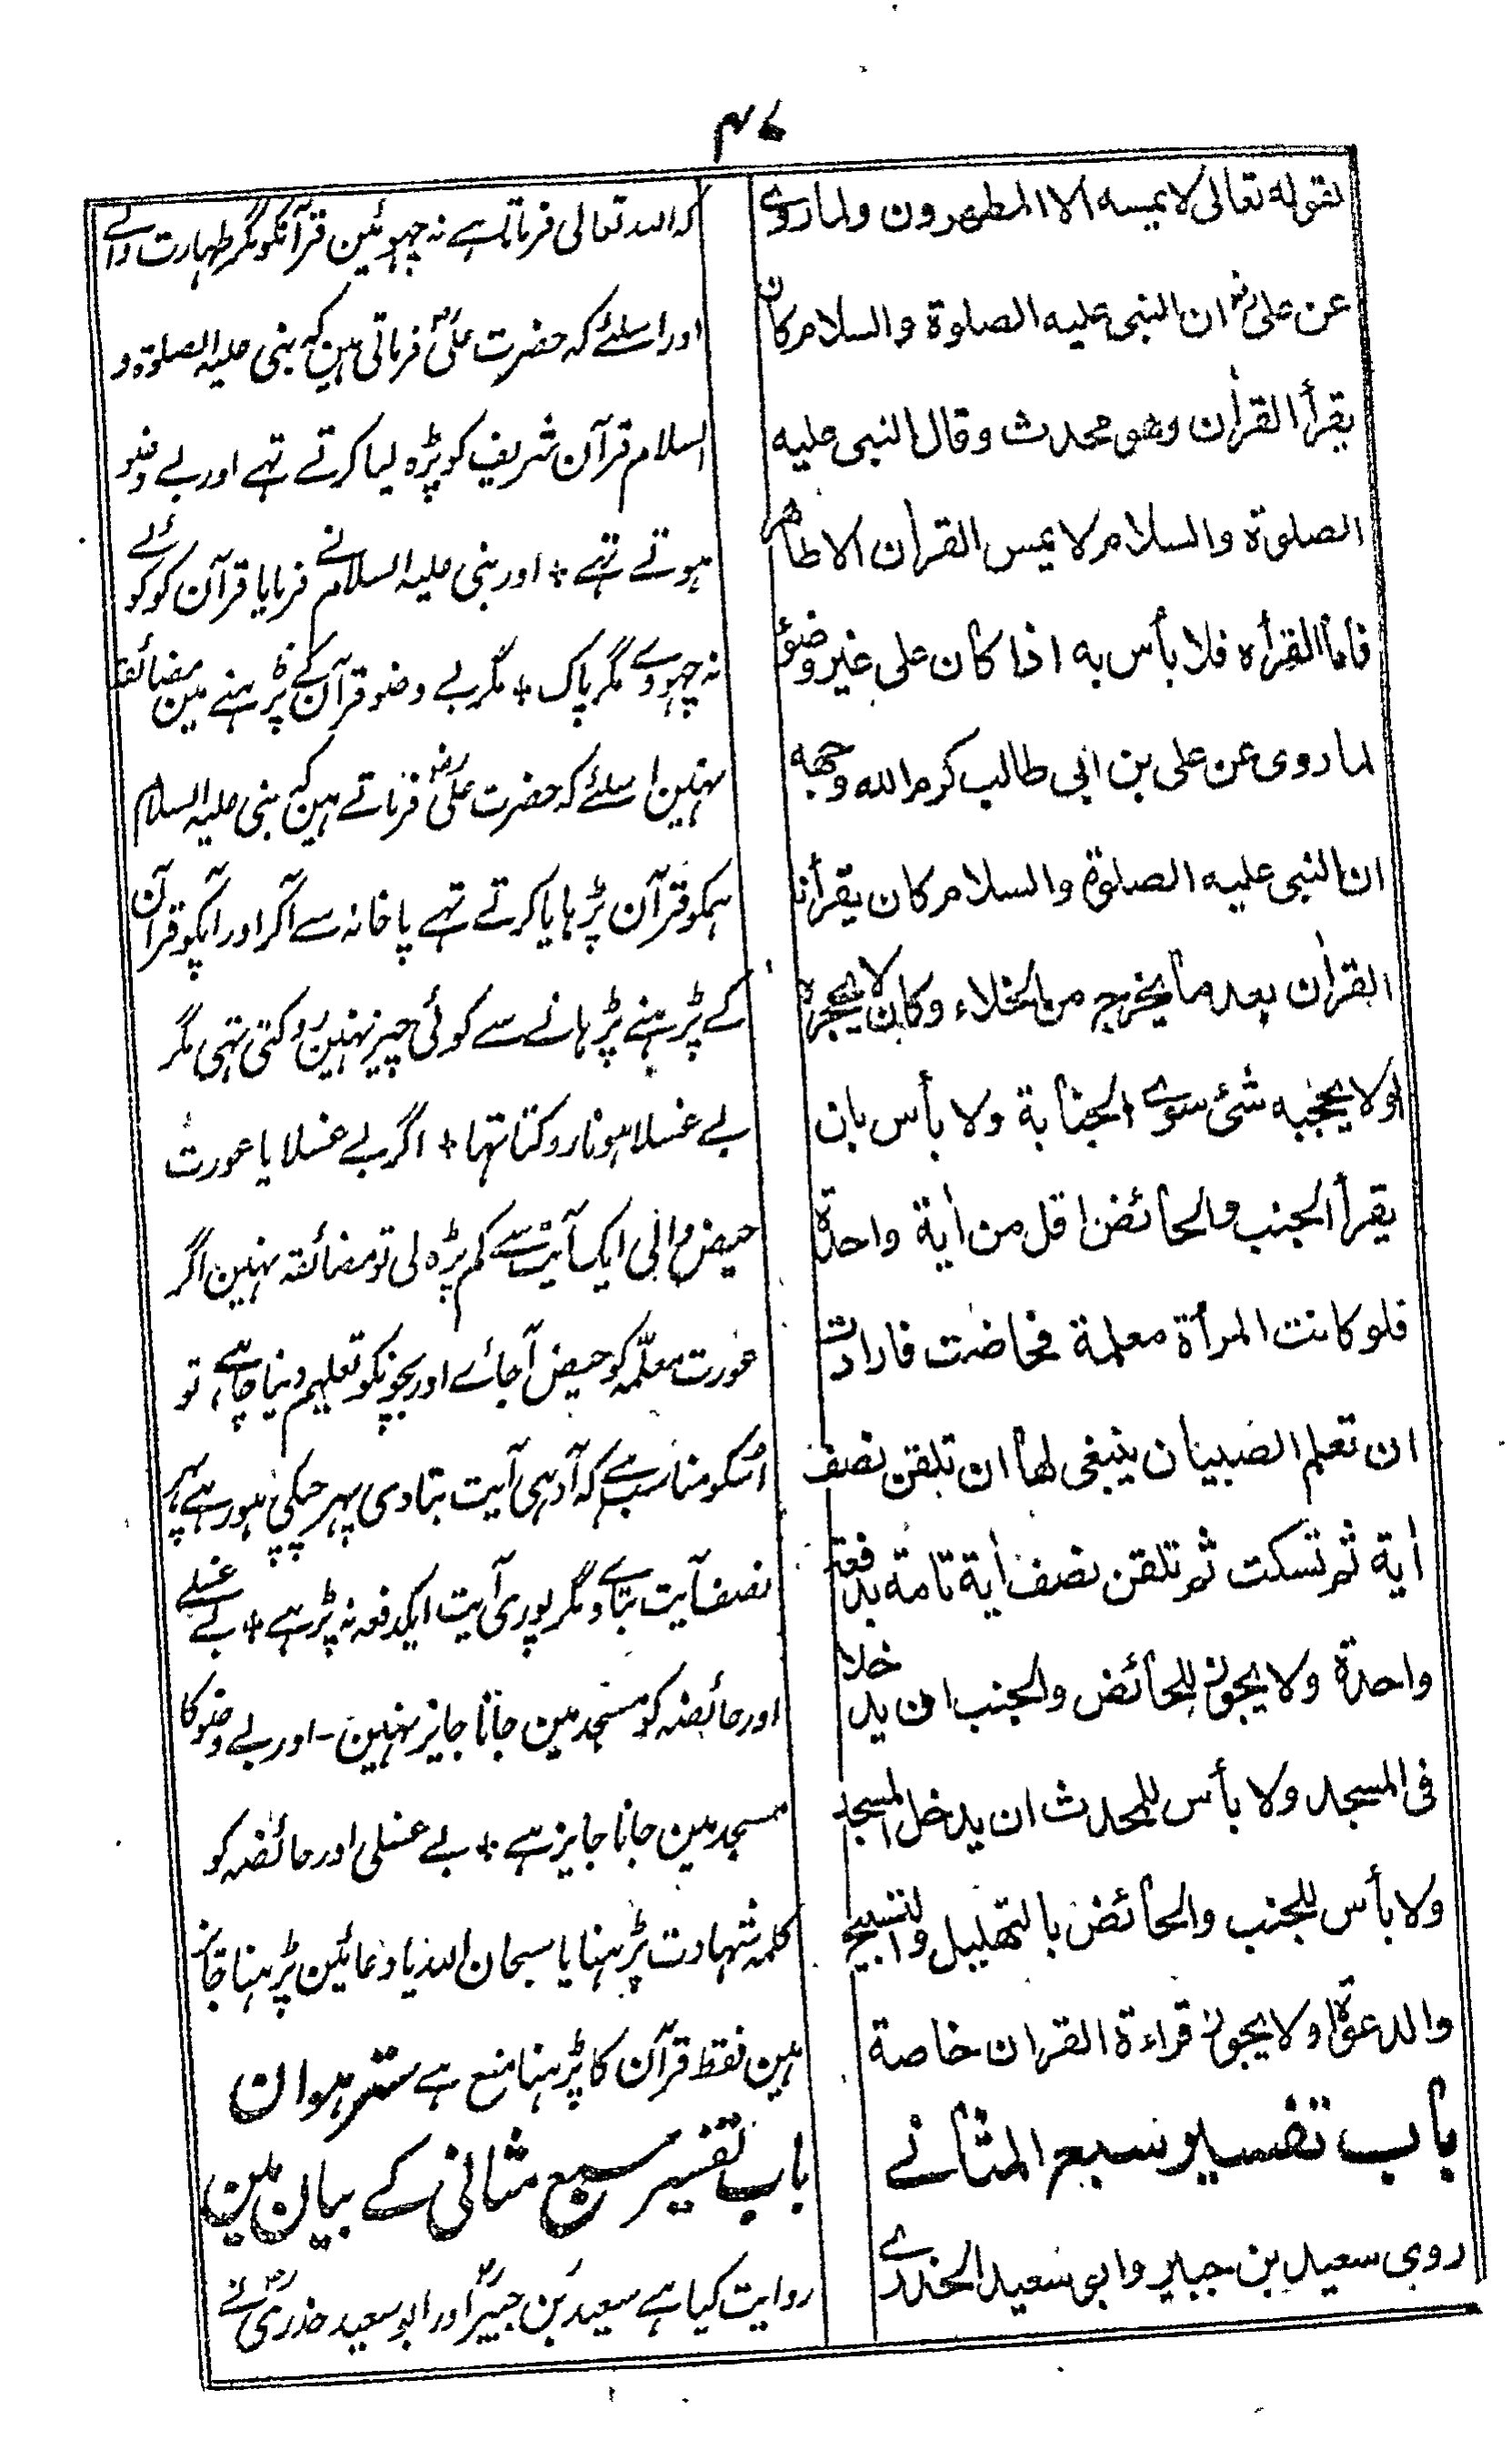 ۴۷
لقوله تعالى لا يمسه الا المطهرون ولما روے
عن على رض ان النبى عليه الصلوة والسلام كان
يقرأ القرأن وهو محدث وقال النبى عليه
الصلوة والسلام لا يمس القرأن الا طاهر
فاما القرأه فلا بأس به اذا كان على غير وضؤ
لما روى عن على بن ابى طالب كرم الله وجهه
ان النبى عليه الصلوة والسلام كان يقرأنا
القرأن بعد ما يخرج من الخلاء وكان لا يحجزه
اولا يحجبه شئ سوے الجنابة ولا بأس بان
يقرأ الجنب والحائض اقل من أية واحدة
فلو كانت المرأة معلمة فحاضت فارادت
ان تعلم الصبيان ينبغى لها ان تلقن نصف
أية ثم تسكت ثم تلقن نصف أية تامة بدفعة
واحدة ولا يجوز للحائض والجنب ان يدخلا
فى المسجد ولا بأس للمحدث ان يدخل المسجد
ولا بأس للجنب والحائض بالتهليل والتسبيح
والدعوة ولا يجوز قراءة القران خاصة
باب تفسير سبع المثانے
روى سعيد بن جبير وابو سعيد الخدرے
کہ اللہ تعالی فرماتا ہے نہ چہوئین قرآنکو مگر طہارت والے
اور اسلئے کہ حضرت علیؓ فرماتی ہین کہ بنی علیہ الصلوۃ و
السلام قرآن شریف کو پڑہ لیا کرتے تہے اور بے وضو
ہوتے تہے + اور بنی علیہ السلام نے فرمایا قرآن کو کوئے
نہ چہووے مگر پاک + مگر بے وضو قرآن کے پڑہنے مین مضائقہ
نہین اسلئے کہ حضرت علی رض فرماتے ہین کہ بنی علیہ السلام
ہمکو قرآن پڑہایا کرتے تہے پاخانہ سے آکر اور آپکو قرآن
کے پڑہنے پڑہانے سے کوئی چیز نہین روکتی تہی مگر
بے غسلا ہونا روکتا تہا + اگر بے غسلا یا عورت
حیض والی ایک آیت سے کم پڑہ لی تو مضائقہ نہین اگر
عورت معلّمہ کو حیض آجائے اور بچونکو تعلیم دینا چاہے، تو
اُسکو مناسب ہے کہ آدہی آیت بتا دی پہر چپکی ہو رہے پہر
نصف آیت بتاوے مگر پوری آیت ایکدفعہ نہ پڑہے + بے غسلے
اور حائضہ کو مسجد مین جانا جایز نہین - اور بے وضو کا
مسجد مین جانا جایز ہے + بے غسلی اور حائضہ کو
کلمہ شہادت پڑہنا یا سبحان اللہ یا دعائین پڑہنا جائز
ہین فقط قرآن کا پڑہنا منع ہے سترہوان
باب تفسیر سبع مثانی کے بیان مین
روایت کیا ہے سعید بن جبیرؓ اور ابو سعید خذریؓ نے